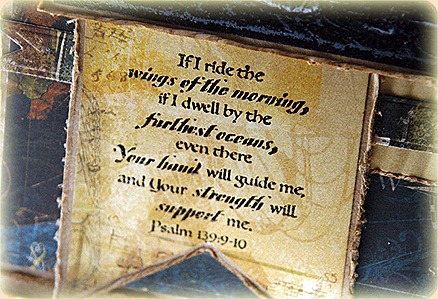 If I ride the
wings of the morning,
if I dwell by the
furthest oceans,
even there
Your hand will guide me,
and Your strength will
support me.
Psalm 139:9-10